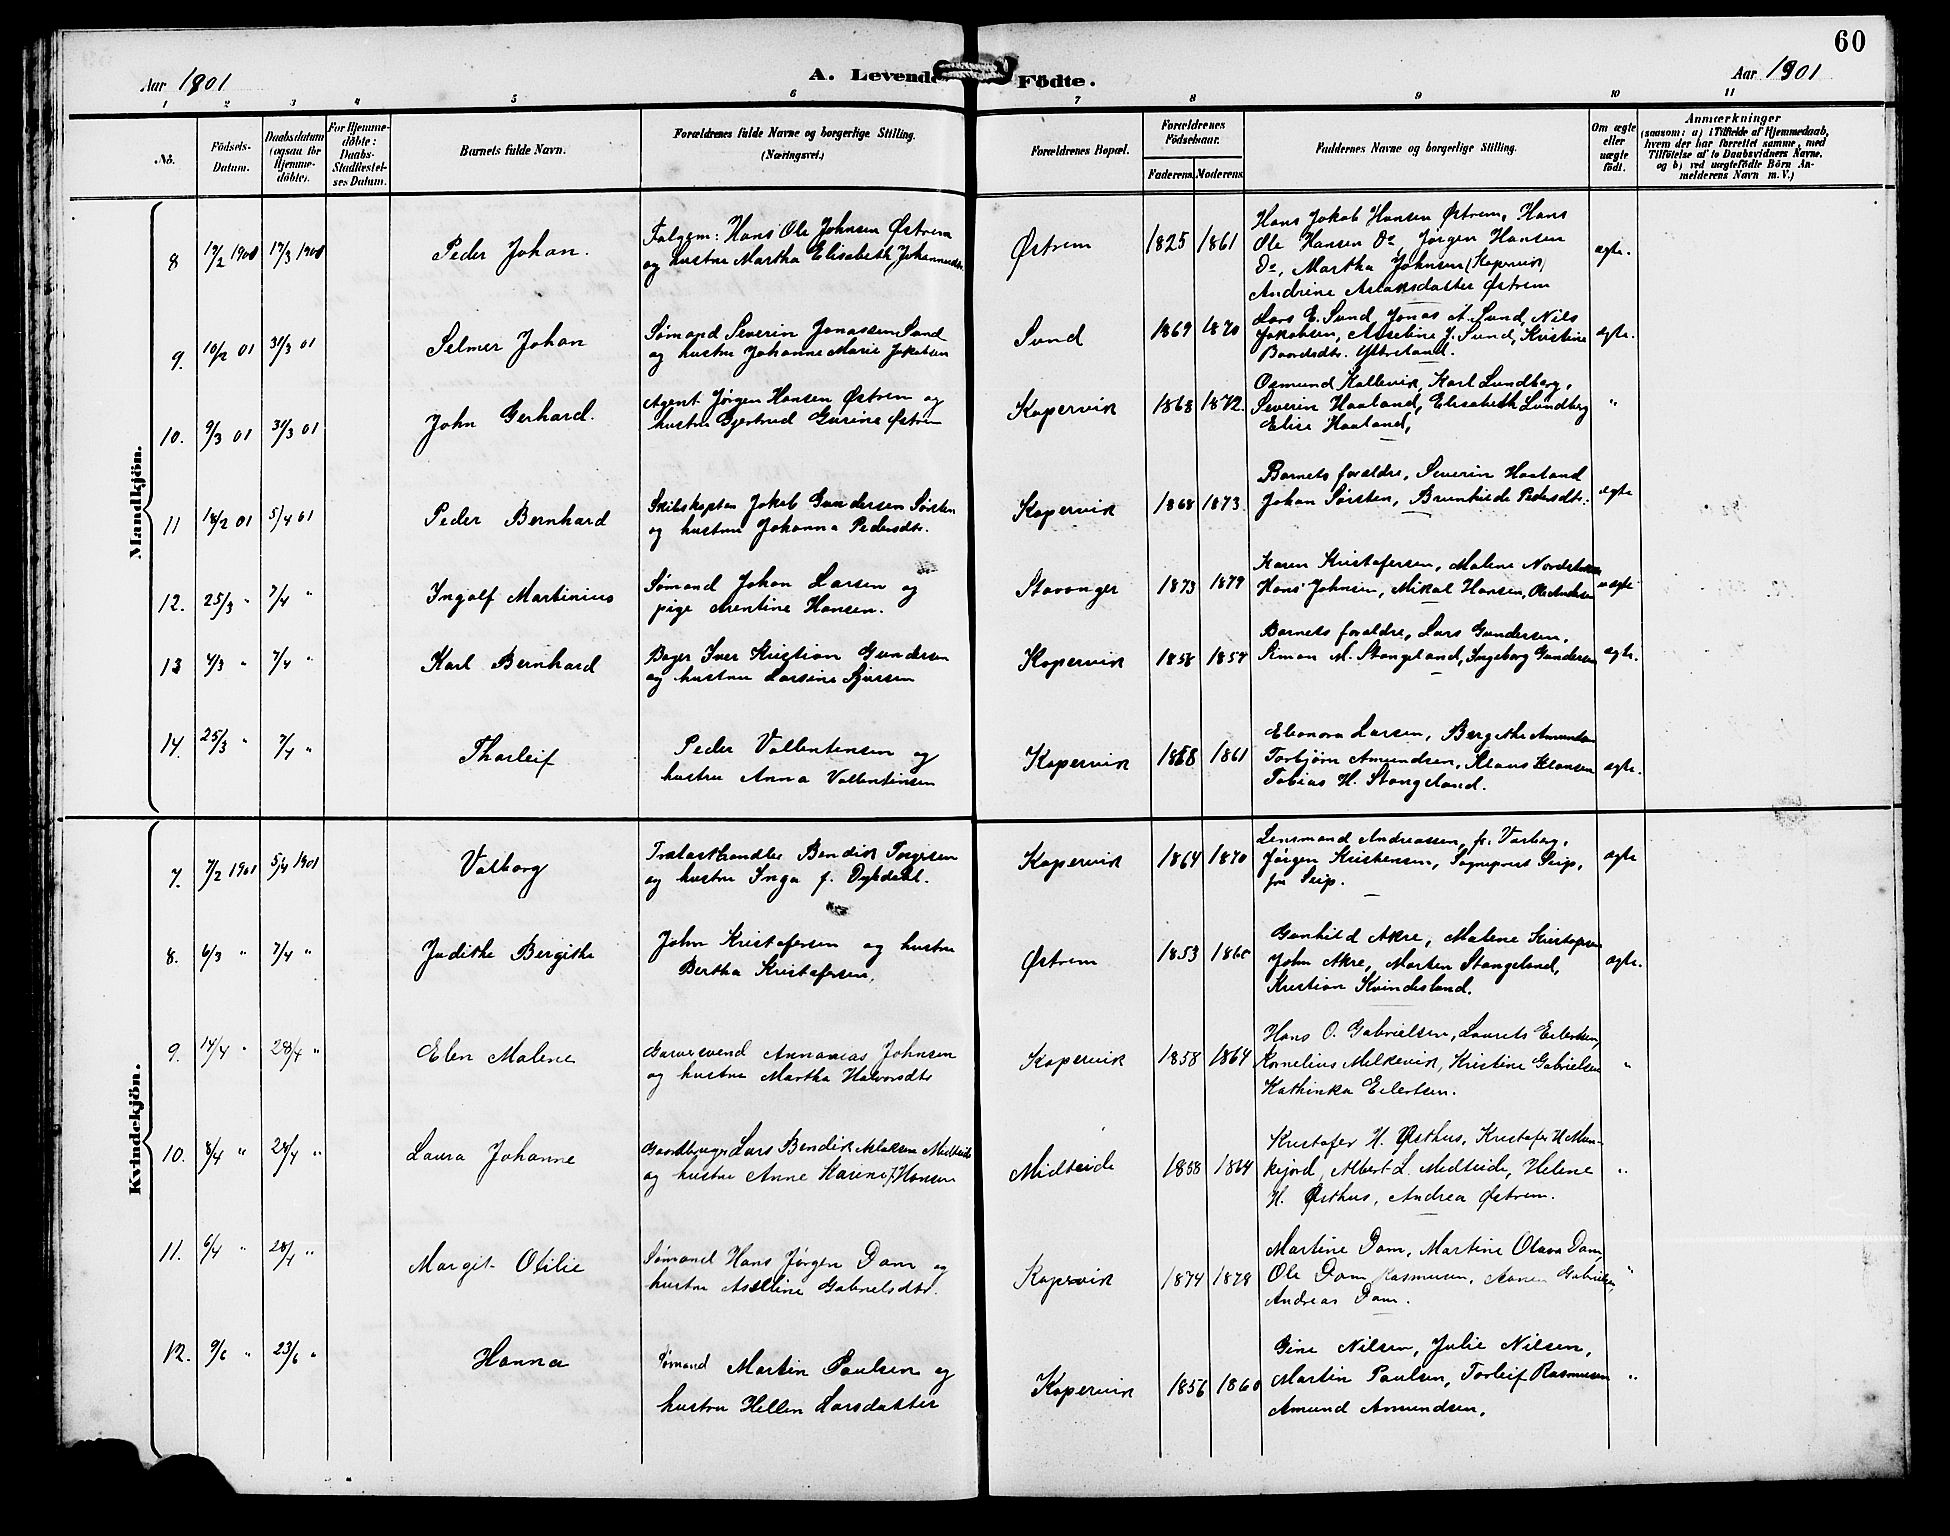 60
Aar 1901
A. Levende Födte.
Aar 1901
1 2 3 4 5 6 7 8 9 10 11
No.
Födsels-Datum.
Daabsdatum (ogsaa för Hjemme-döbte).
For Hjemme-döbte: Daabs-Stadfestel-ses Datum.
Barnets fulde Navn.
Forældrenes fulde Navne og borgerlige Stilling. (Næringsvei.)
Forældrenes Bopæl.
Forældrenes Födselsaar.
Faderens. Moderens.
Faddernes Navne og borgerlige Stilling.
Om ægte eller uægte födt.
Anmærkninger
(saasom: a) i Tilfælde af Hjemmedaab,
hvem der har forrettet samme, med
Tilföielse af to Daabsvidners Navne,
og b) ved uægtefödte Börn An-
melderens Navn m. V.)
Mandkjön.
8 17/2 1901 17/3 1901 Peder Johan.
Folgem: Hans Ole Johnsen Østrem
og hustru Martha Elisabeth Johannesdtr
Østrem 1825 1861
Hans Jakob Hansen Østrem, Hans
Ole Hansen Do, Jørgen Hansen
Do, Martha Johnsen (Kopervik)
Andrine Aslaksdatter Østrem
ægte.
9. 10/2 01 31/3 01 Selmer Johan
Sømand Severin Jonassen Sund
og hustru Johanne Marie Jakobsen
Sund 1869 1870
Lars E. Sund, Jonas A. Sund, Nils
Jakobsen, Anseline J. Sund, Kristine
Baardsdtr. Ytreland.
ægte.
10. 9/3 01 31/3 01 John Gerhard.
Agent Jørgen Hansen Østrem og
hustru Gjertrud Gurine Østrem
Kopervik 1868 1872.
Osmund Kallevik, Karl Lundberg,
Severin Haaland, Elisabeth Lundberg
Elise Haaland,
"
11 18/2 01 5/4 01 Peder Bernhard
Skibskaptn Jakob Gundersen Sørsten
og hustru Johanna Pedersdtr.
Kopervik 1868 1873.
Barnets forældre, Severin Haaland
Johan Sørsten, Brunhilde Pedersdtr.
ægte
12. 25/3 " 7/4 " Ingolf Martinius
Sømand Johan Larsen og
pige Arentine Hansen.
Stavanger 1873 1879
Karen Kristofersen, Malene
Hans Johnsen, Mikal Hansen, Ole
uægte
13 4/3 " 7/4 " Karl Bernhard
Bager Iver Kristian Gundersen
og hustru Larsine
Kopervik 1858 1857
Barnets forældre, Lars Gundersen,
Simon M. Stangeland, Ingeborg Gundersen
ægte.
14. 25/3 " 7/4 " Thorleif
Peder Vallentensen og
hustru Anna Vallentinsen
Kopervik 1858 1861
Eleonora Larsen, Bergithe Amundsen
Torbjørn Amundsen, Klaus Klausen
Tobias H. Stangeland.
ægte.
Kvindekjön.
7. 7/2 1901 5/4 1901 Valborg
Trælasthandler Bendik Torgersen
og hustru Inga f. Dybdahl.
Kopervik 1864 1870
Lensmand Andreassen, fr. Varberg,
Jørgen Kristensen, Sogneprest Seip,
fru Seip.
ægte
8. 6/3 " 7/4 " Judithe Bergithe
John Kristofersen og hustru
Bertha Kristofersen,
Østrem 1853 1860
Gunhild Akre, Malene Kristofersen
John Akre, Morten Stangeland,
Kristian Kvindesland.
ægte.
9. 14/4 " 28/4 " Elen Malene
Garversvend Annanias Johnsen
og hustru Martha Halvorsdtr
Kopervik 1858 1864
Hans O. Gabrielsen, Laurits Eilertsen,
Kornelius Milkevik, Kristine Gabrielsen
Kathinka Eilertsen.
"
10. 8/4 " 28/4 " Laura Johanne
Gaardbruger Lars Bendik Aslaksen Midteide
og hustru Anne Karine Hansen
Midteide 1858 1864
Kristofer H. Østhus, Kristofer H Mun-
kejord, Albert L. Midteide, Helene
H. Østhus, Andrea Østrem.
"
11. 6/4 " 28/4 " Margit Otilie
Sømand Hans Jørgen Dam og
hustru Asseline Gabrielsdtr.
Kopervik 1874 1878
Martine Dam, Martine Olava Dam,
Ole Dam Rasmusen, Aanen Gabrielsen,
Andreas Dam.
"
12. 9/6 " 23/6 " Hanna
Sømand Martin Paulsen og
hustru Hellen Larsdatter
Kopervik 1856 1860
Gine Nilsen, Julie Nilsen,
Martin Paulsen, Torleif Rasmusen
Amund Amundsen,
"